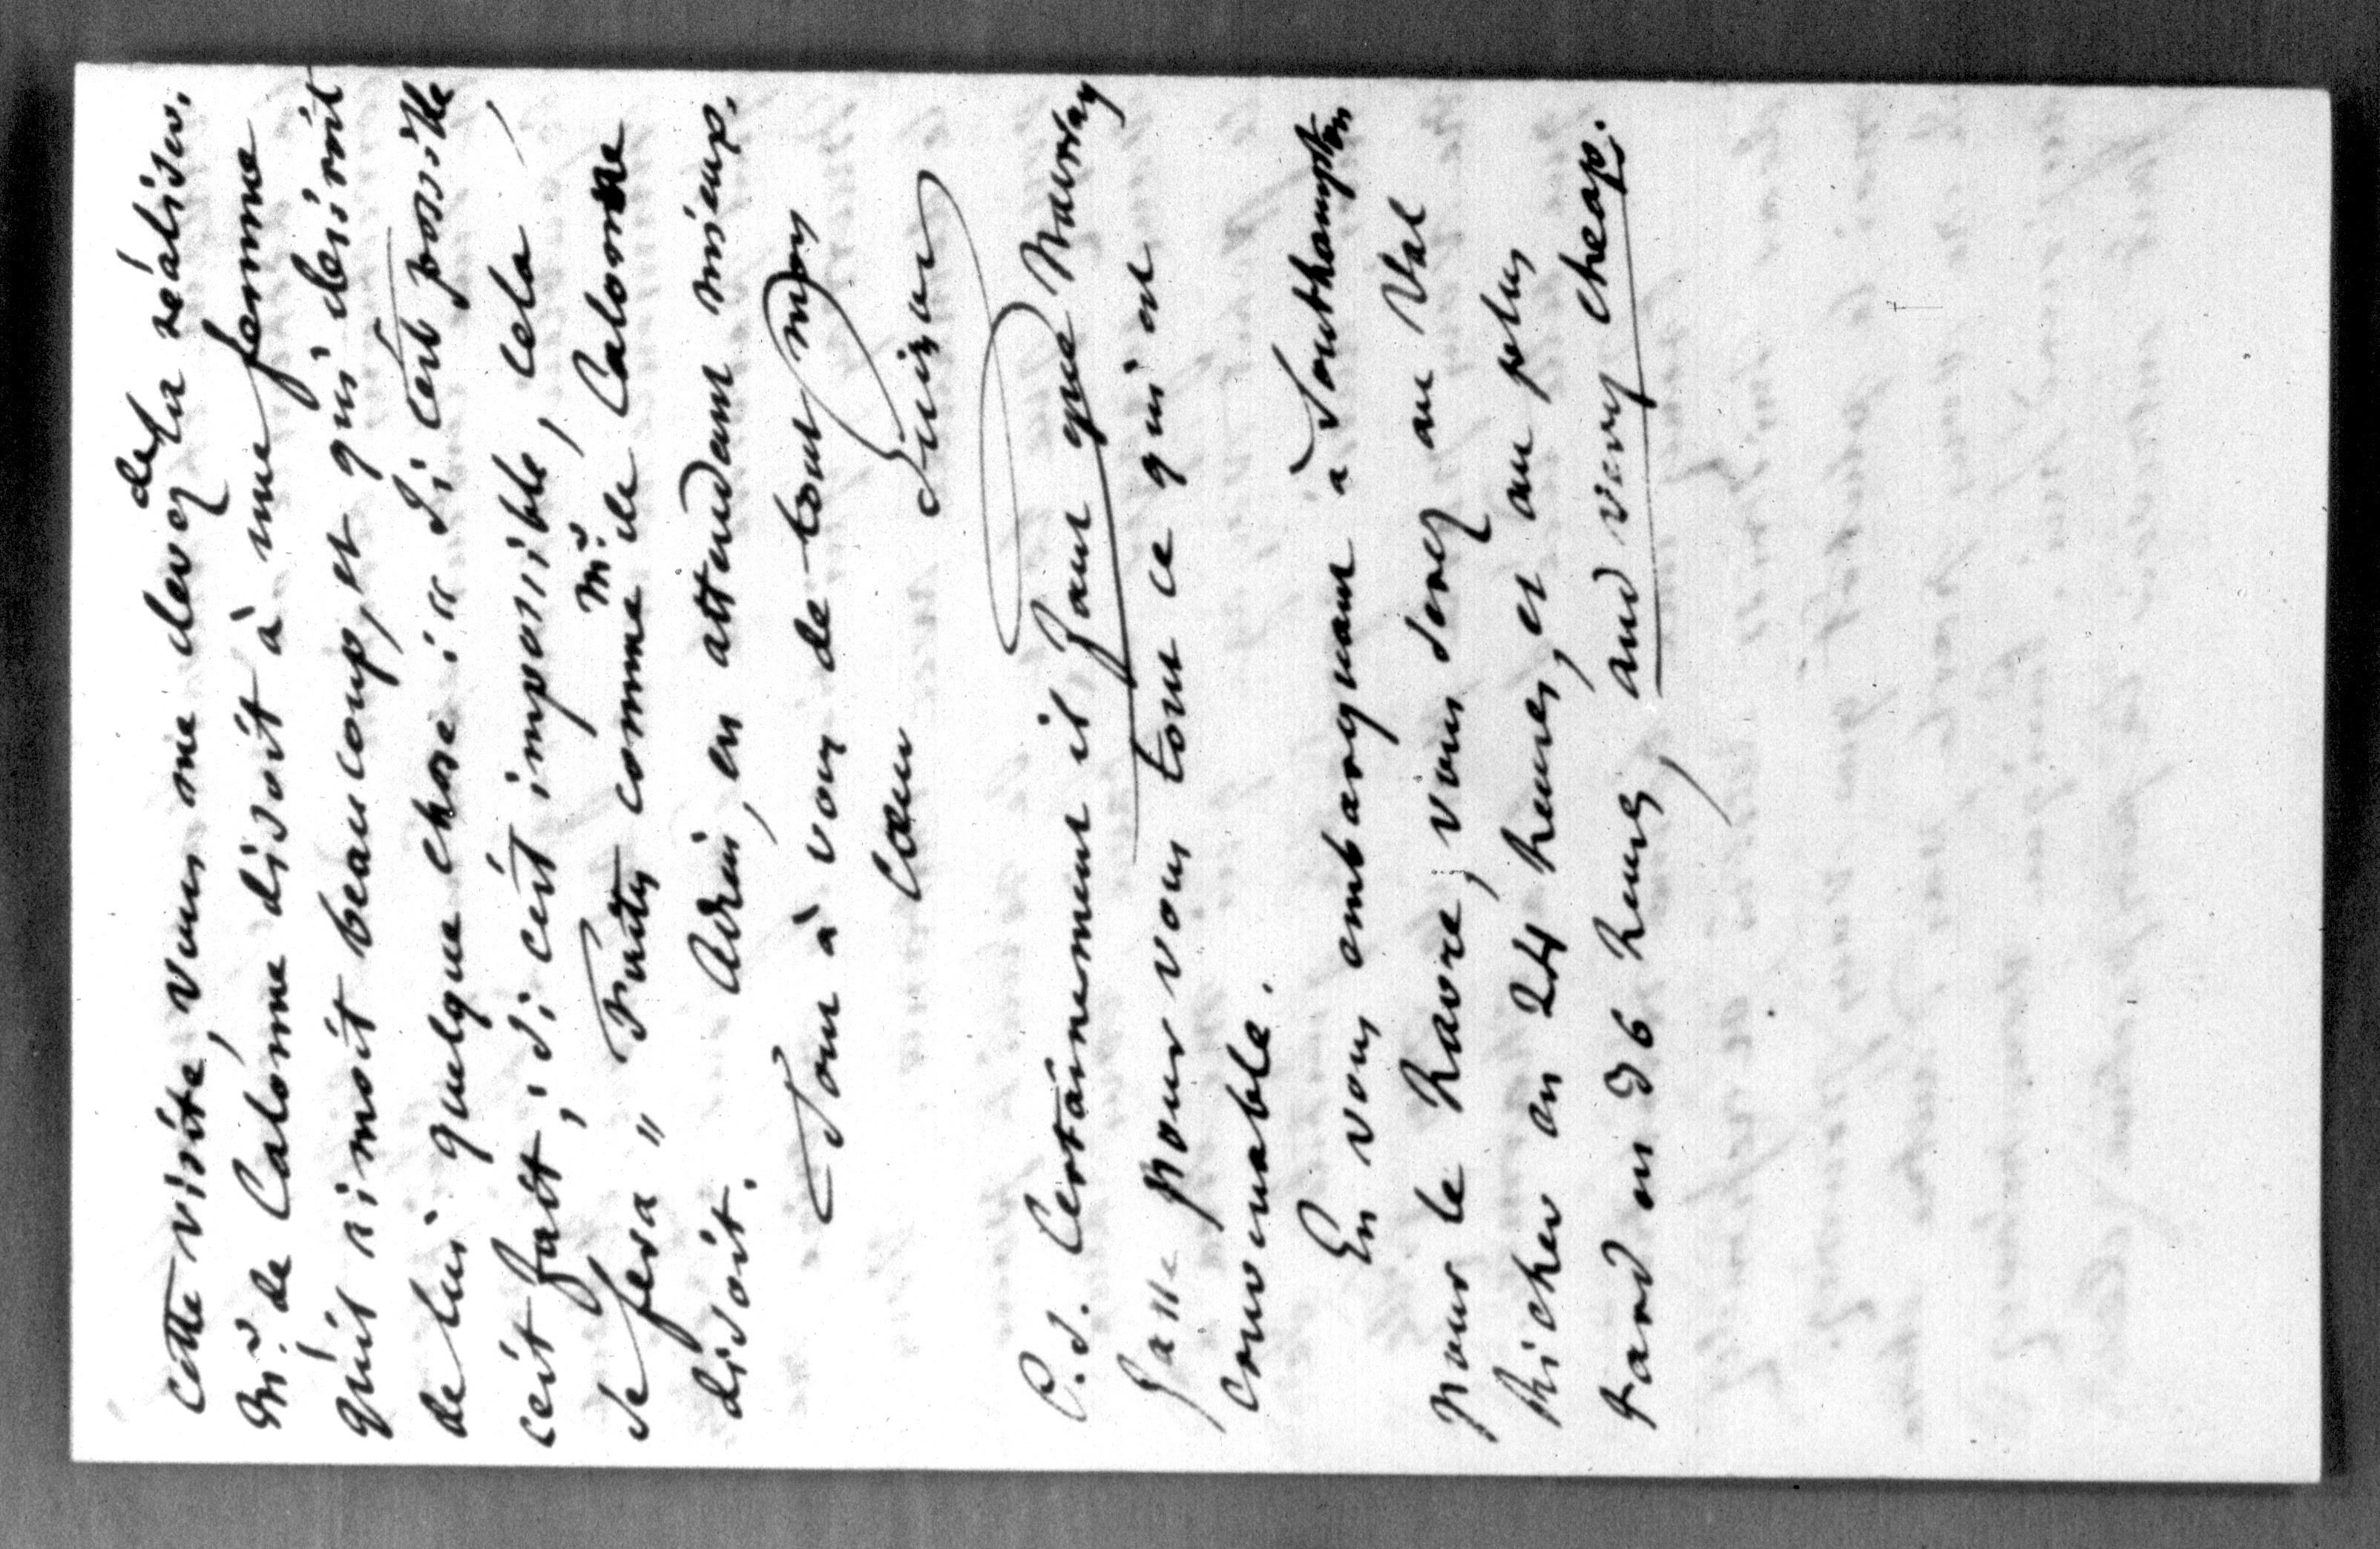 cette visite, vous me devez de la réaliser.
Mr. de Calonne disoit à une femme
qu'il aimoit beaucoup, et qui desiroit
de lui quelque chose : « Si c'est possible
c'est fait ; si c'est impossible, cela
se fera » Faites comme Mr. de Calonne
disoit. Adieu, en attendant mieux.
Tout à vous de tout mon
Cœur
P.S. Certainement il faut que Murray
fasse pour vous tout ce qui est
convenable.
En vous embarquant à Southampton
pour le havre, vous serez au Val
Richer en 24 heures, et au plus
tard en 36 heures, and very cheap.